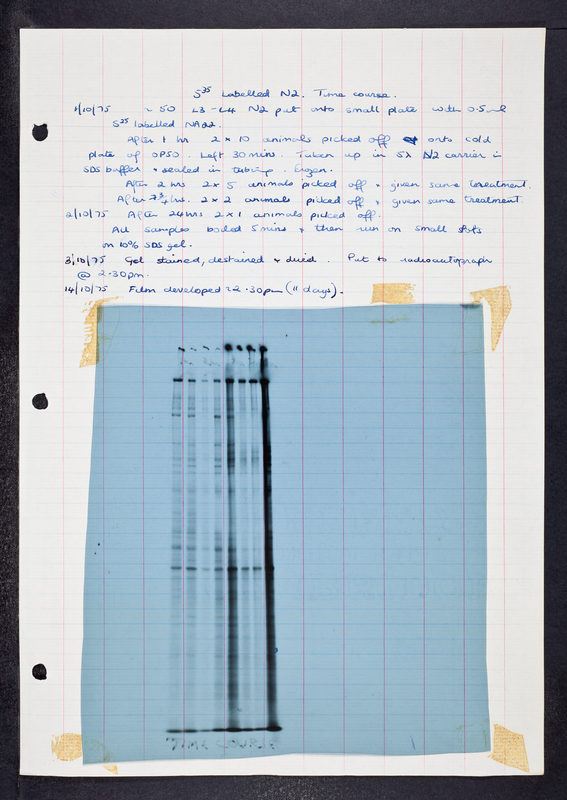 S³⁵ Labelled N2. Time course.
1/10/75 ~ 50 L3-L4 N2 put onto small plate with 0.5ml
S³⁵ labelled NA22.
After 1 hr 2 x 10 animals picked off onto cold
plate of OP50. Left 30 mins. Taken up in 5λ N2 carrier in
SDS buffer + sealed in tubing. Frozen.
After 2 hrs 2 x 5 animals picked off + given same treatment.
After 7¾ hrs. 2 x 2 animals picked off + given same treatment.
2/10/75 After 24hrs 2 x 1 animals picked off.
All samples boiled 5 mins + then run on small slots
on 10% SDS gel.
3/10/75 Gel stained, destained + dried. Put to radioautograph
@ 2.30pm.
14/10/75 Film developed ~2.30pm (11 days).